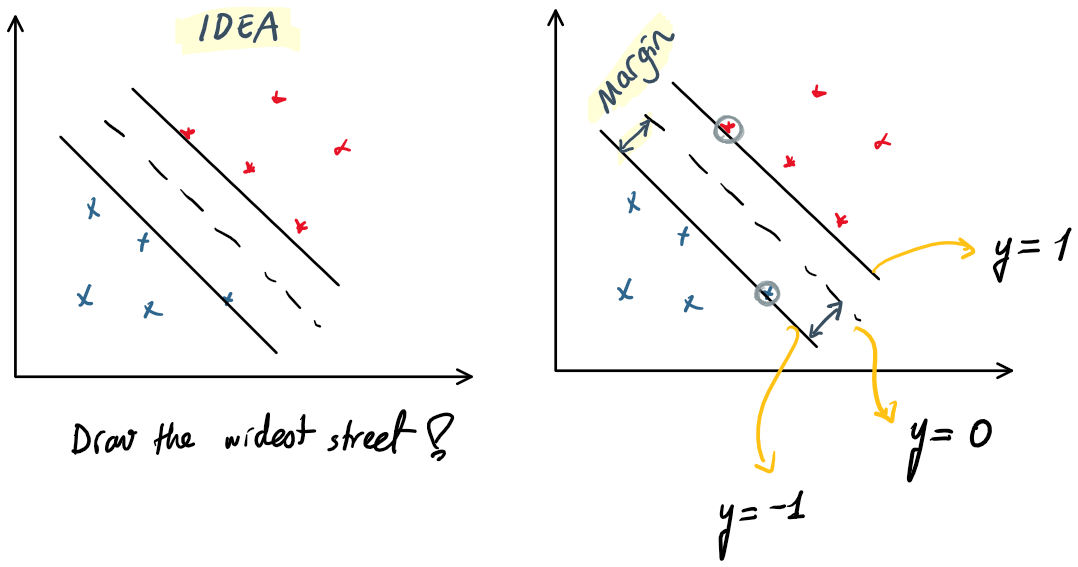 IDEA
Draw the widest street!
Margin
y = 1
y = 0
y = -1